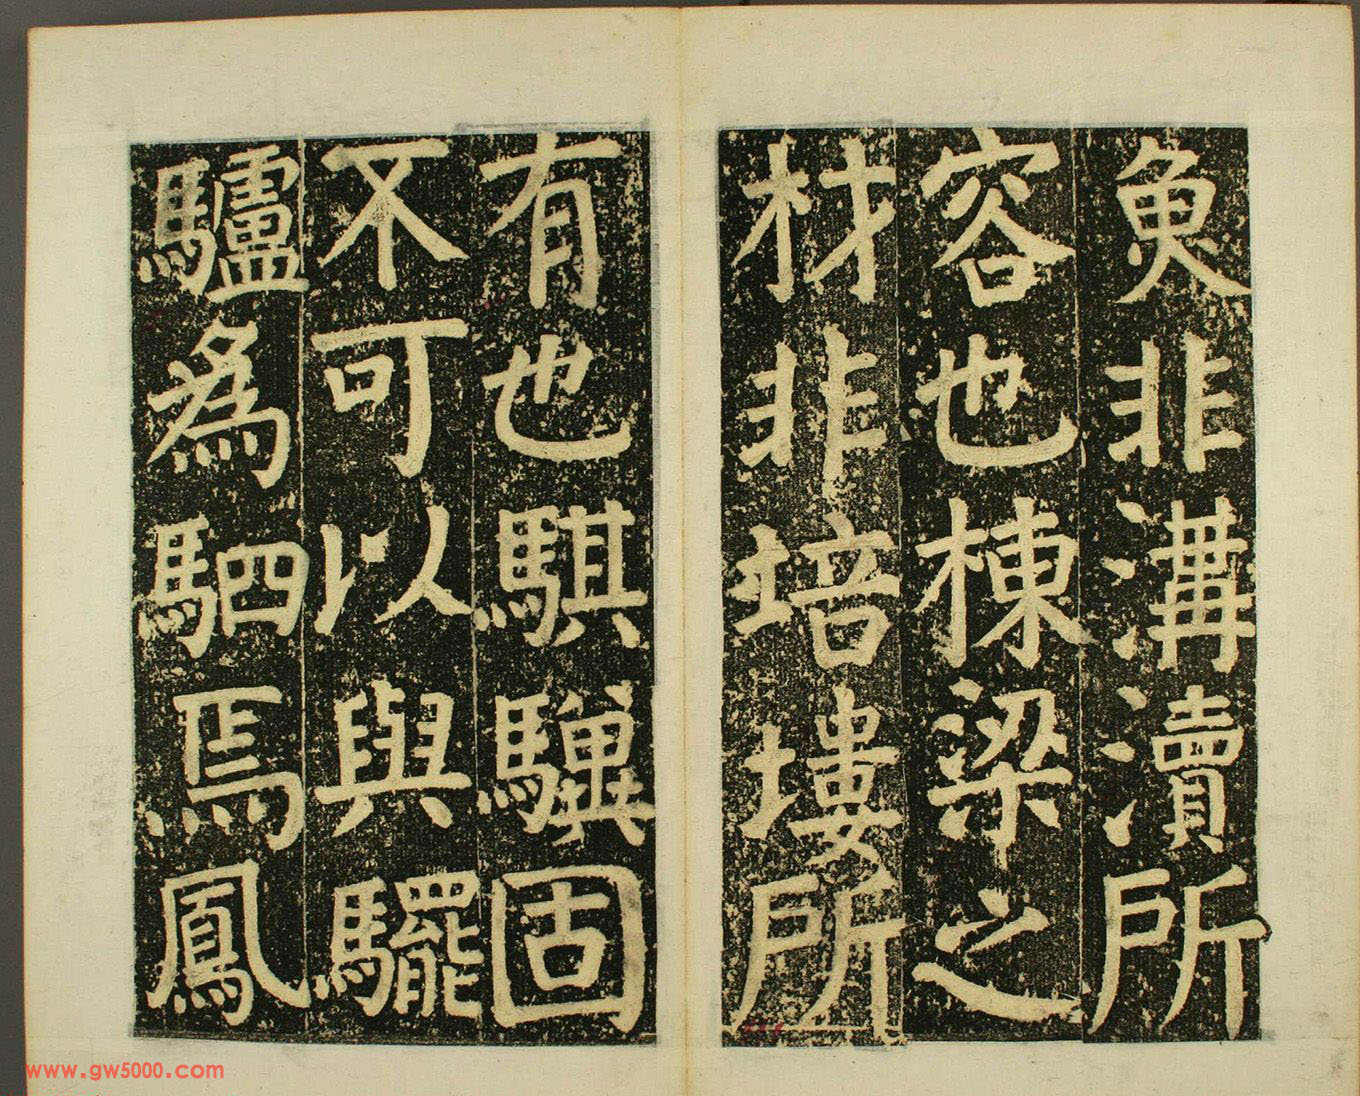 魚非溝瀆所
容也棟梁之
材非培塿所
有也騏驥固
不可以與䮫
驢為駟焉鳳
www.gw5000.com